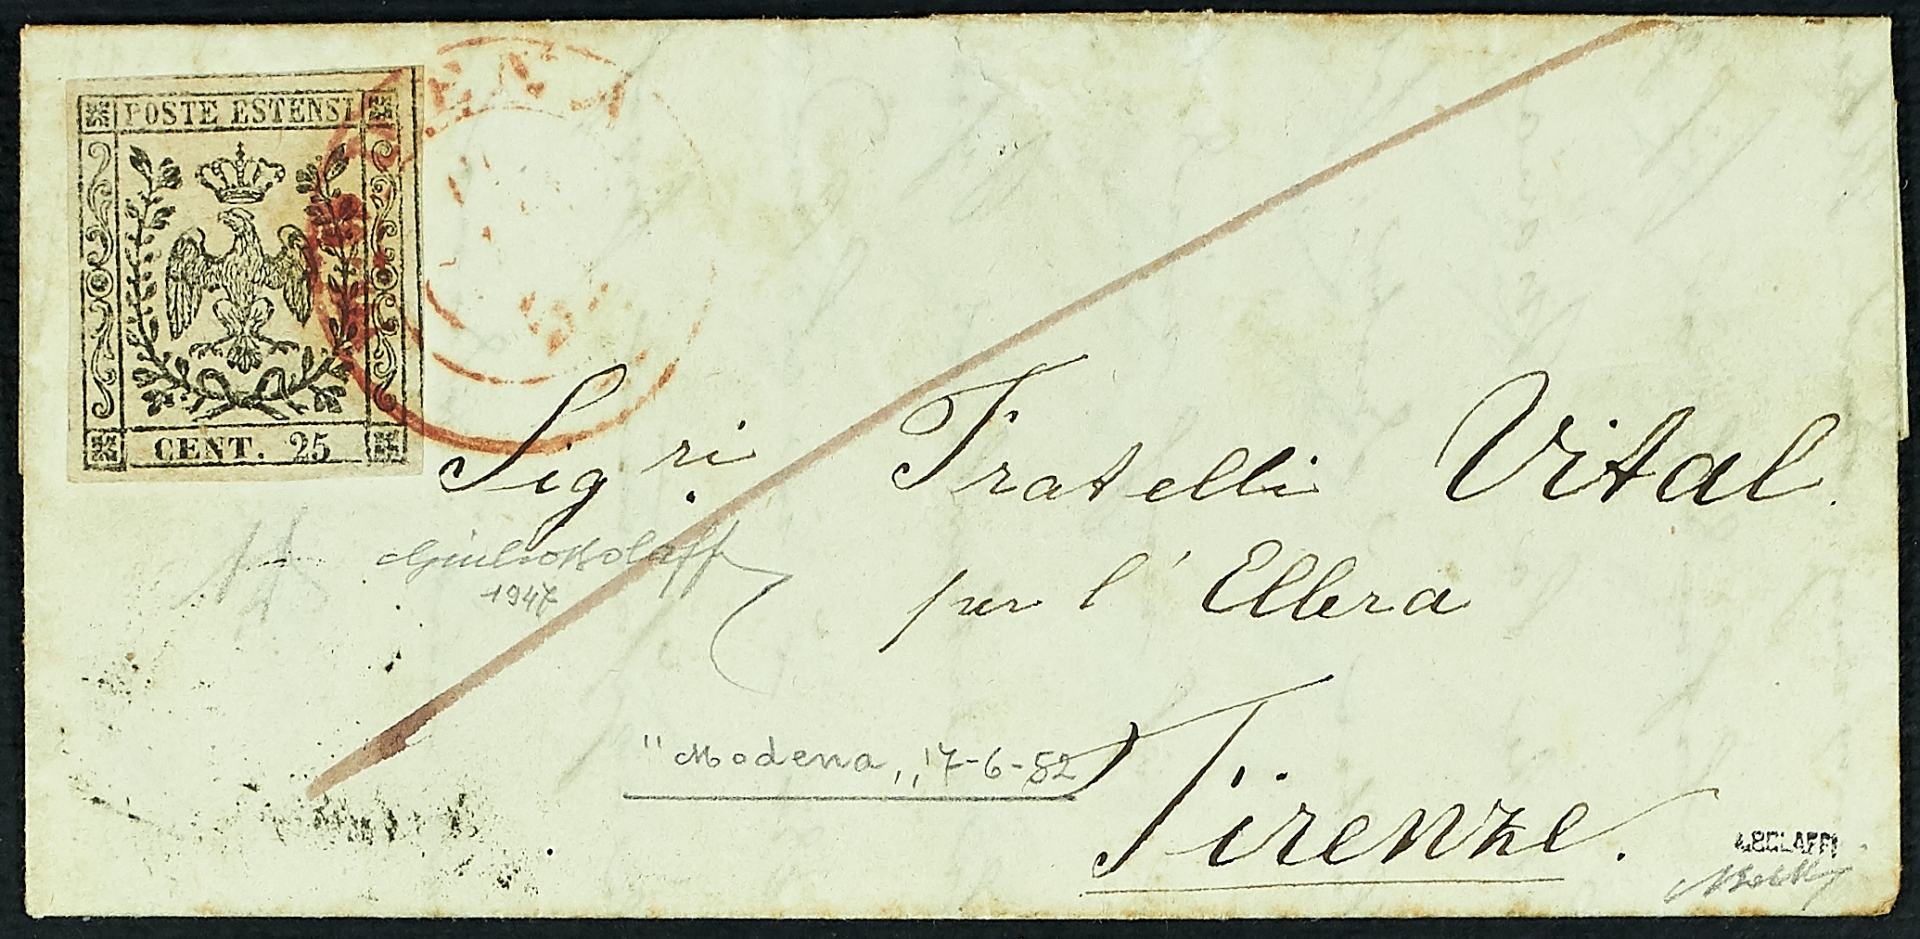 POSTE ESTENSI
CENT. 25
Sig.ri Fratelli Vital
per l' Ellera
1947
"Modena„ 17-6-52
Firenze.